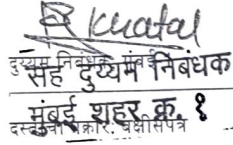 R Khatal
दुय्यम निबंधक मुंबई
सह दुय्यम निबंधक
मुंबई शहर क्र. १
दस्तऐवजाचा प्रकार: बक्षीसपत्र